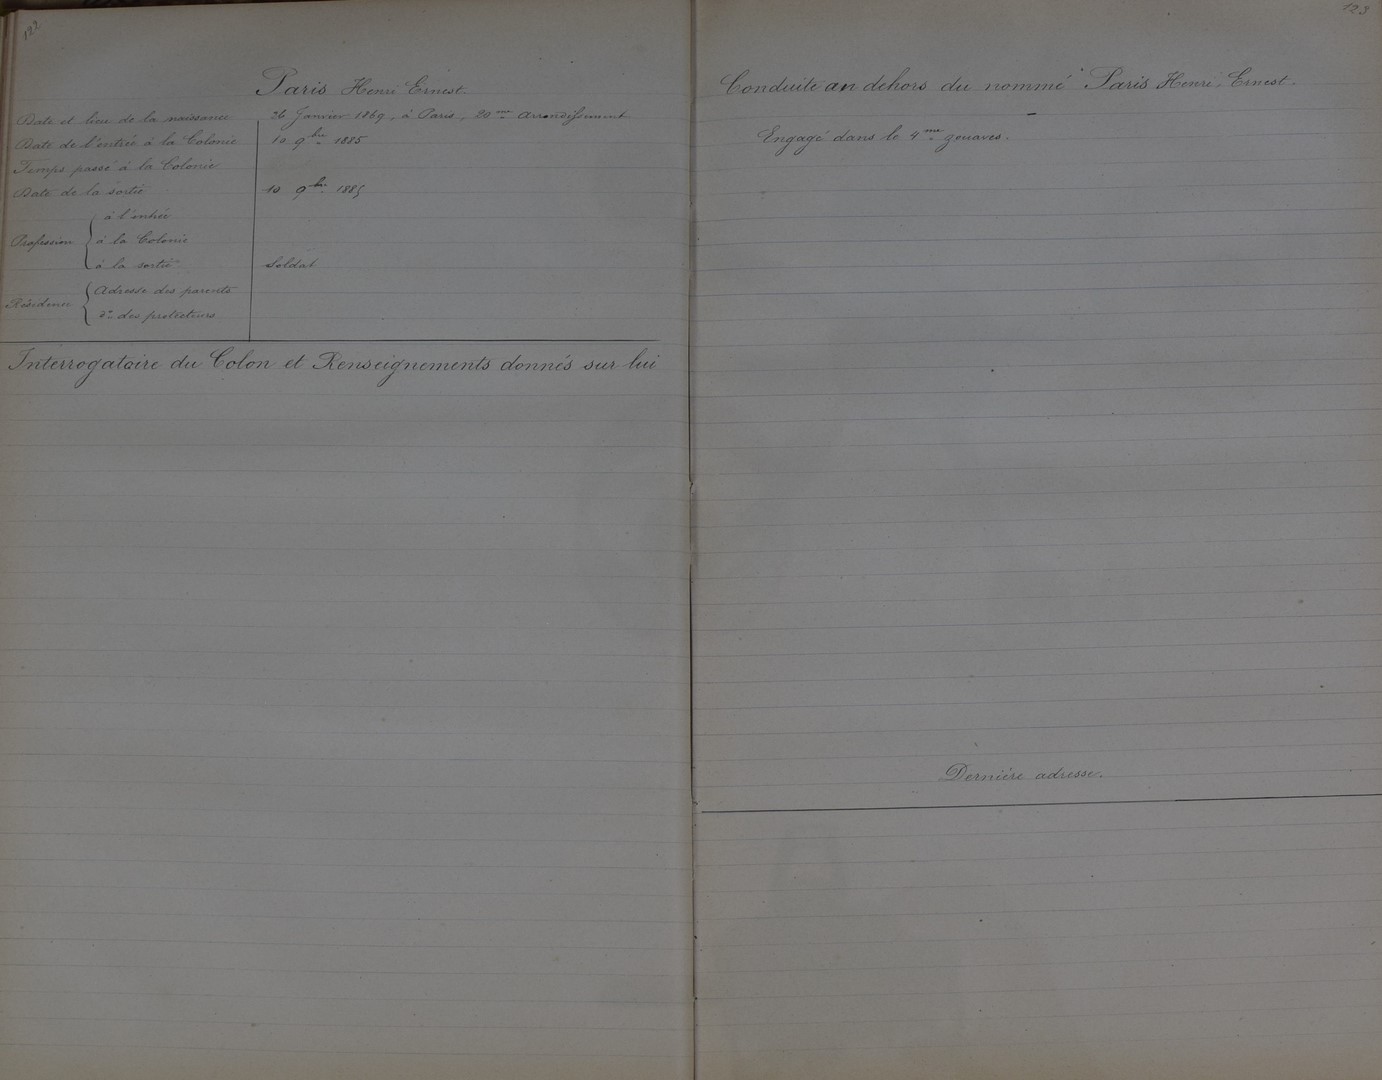 122
Paris Henri Ernest.
Date et lieu de la naissance 26 Janvier 1869, à Paris, 20me arrondissement
Date de l'entrée à la Colonie 10 9bre 1885
Temps passé à la Colonie
Date de la sortie 10 9bre 1885
Profession
à l'entrée
à la Colonie
à la sortie Soldat
Résidence
Adresse des parents
do des protecteurs
Interrogatoire du Colon et Renseignements donnés sur lui
123
Conduite au dehors du nommé Paris Henri, Ernest.
Engagé dans le 4me zouaves.
Dernière adresse.